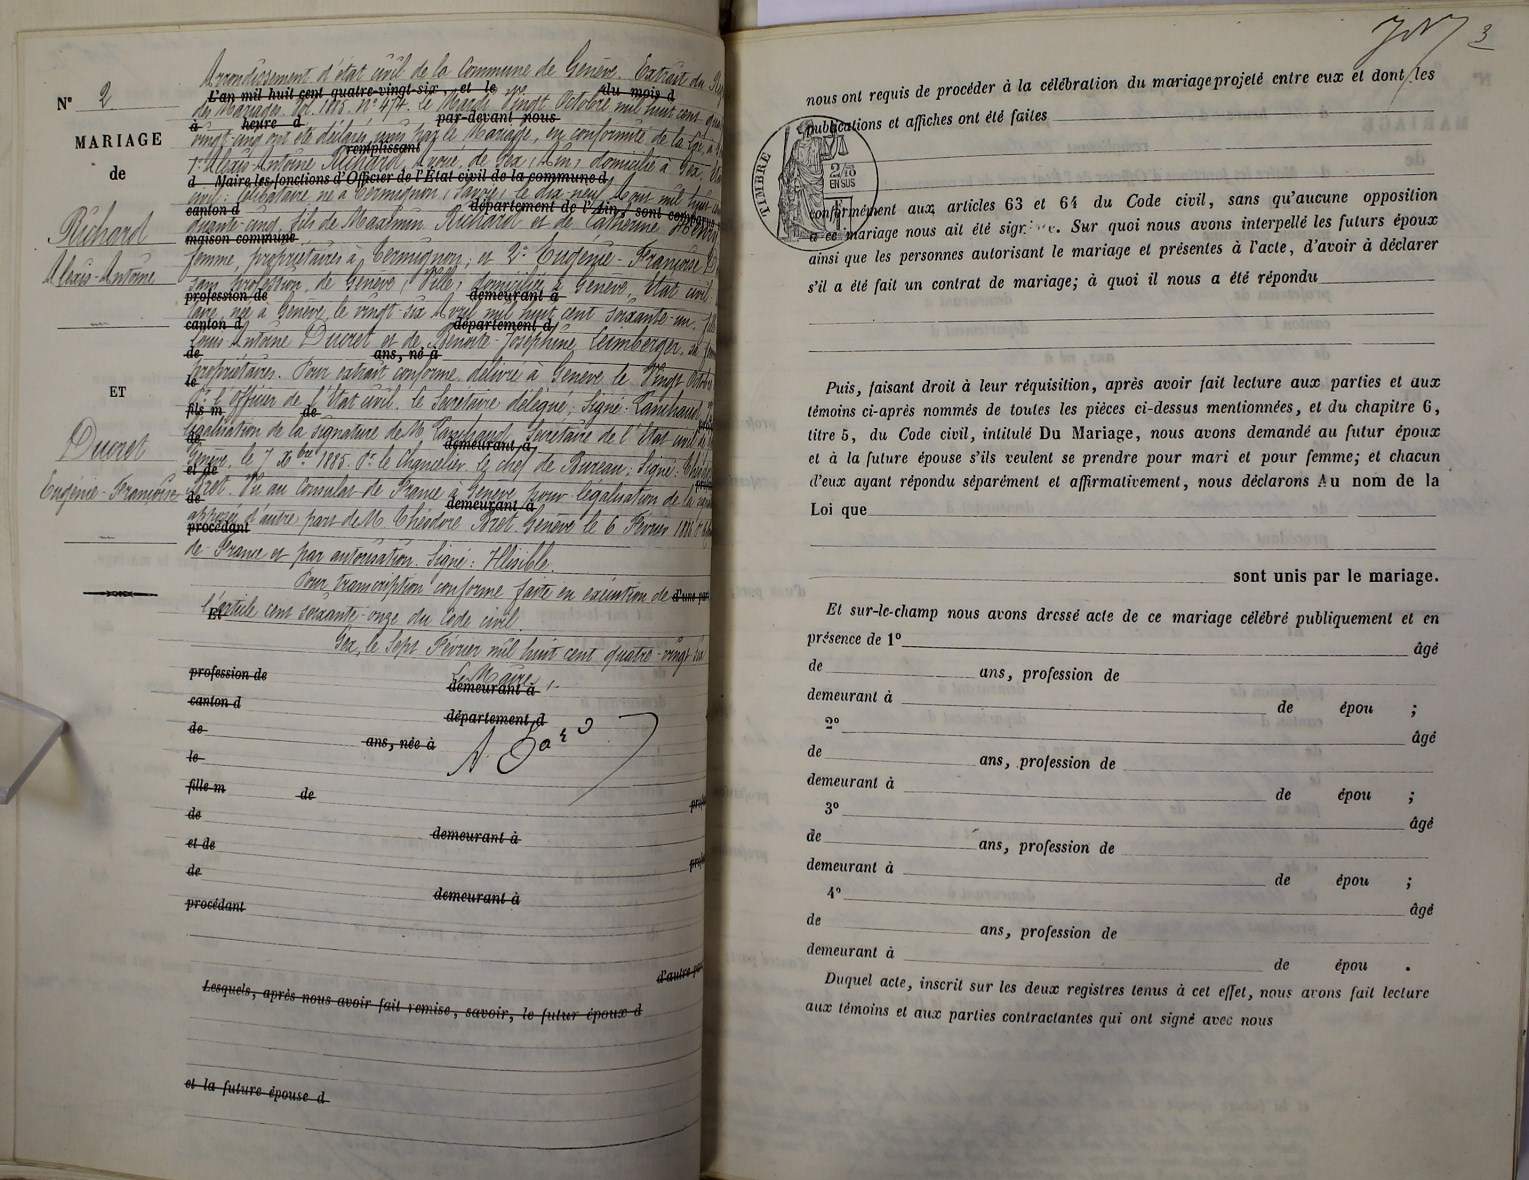 N° 2
MARIAGE
de
Richard
Alexis-Antoine
ET
Ducret
Eugénie-Françoise
Arrondissement d'état civil de la Commune de Genève. Extrait du
L'an mil huit cent quatre-vingt-six, et le du mois d
des Mariages. Vol. 1885. N° 474. Le Mardi Vingt Octobre mil huit cent
à heure d par-devant nous
vingt-cinq ont été déclarés unis par le Mariage, en conformité de la Loi,
remplissant
1° Alexis-Antoine Richard, Avoué, de Gex (Ain) domicilié à Gex,
d Maire les fonctions d'Officier de l'État civil de la commune d
civil: célibataire, né à Termignon (Savoie) le dix-neuf
canton d département de l'Ain, sont comparus
quante-cinq, fils de Maximin Richard et de Catherine
maison commune
femme, propriétaires à Termignon; et 2° Eugénie-Françoise
sans profession, de Genève, Ville, domiciliée à Genève, Etat civil
profession de demeurant à
née à Genève le vingt-six Avril mil huit cent soixante-un,
canton d département d
Louis-Antoine Ducret et de Benoite-Joséphine Leimberger, sa
de ans, né à
propriétaires. Pour extrait conforme délivré à Genève le Vingt Octobre
le
Pr l'Officier de l'Etat civil. le Secrétaire délégué; Signé:
fils m de
légalisation de la signature de M. Secrétaire de l'Etat civil
de demeurant à
Genève, le 7 Xbre 1885. Pr le Chancelier, le chef de Bureau; Signé:
et de
Bret. Vu au Consulat de France à Genève pour légalisation de la
de demeurant à
apposée d'autre part de M. Théodore Bret. Genève le 6 Février 1886
procédant
de France et par autorisation. Signé: Illisible.
Pour transcription conforme faite en exécution de d'une part
Et l'article cent soixante-onze du Code civil.
Gex, le Sept Février mil huit cent quatre-vingt six
Le Maire,
profession de demeurant à
canton d département d
de ans, née à
le
fille m de
de demeurant à
et de
de demeurant à
procédant
d'autre part
Lesquels, après nous avoir fait remise, savoir, le futur époux d
et la future épouse d
3
nous ont requis de procéder à la célébration du mariage projeté entre eux et dont les
publications et affiches ont été faites
TIMBRE
2/10
EN SUS
conformément aux articles 63 et 64 du Code civil, sans qu'aucune opposition
à ce mariage nous ait été sign. Sur quoi nous avons interpellé les futurs époux
ainsi que les personnes autorisant le mariage et présentes à l'acte, d'avoir à déclarer
s'il a été fait un contrat de mariage; à quoi il nous a été répondu
Puis, faisant droit à leur réquisition, après avoir fait lecture aux parties et aux
témoins ci-après nommés de toutes les pièces ci-dessus mentionnées, et du chapitre 6,
titre 5, du Code civil, intitulé Du Mariage, nous avons demandé au futur époux
et à la future épouse s'ils veulent se prendre pour mari et pour femme; et chacun
d'eux ayant répondu séparément et affirmativement, nous déclarons Au nom de la
Loi que
sont unis par le mariage.
Et sur-le-champ nous avons dressé acte de ce mariage célébré publiquement et en
présence de 1° âgé
de ans, profession de
demeurant à de épou ;
2° âgé
de ans, profession de
demeurant à de épou ;
3° âgé
de ans, profession de
demeurant à de épou ;
4° âgé
de ans, profession de
demeurant à de épou .
Duquel acte, inscrit sur les deux registres tenus à cet effet, nous avons fait lecture
aux témoins et aux parties contractantes qui ont signé avec nous